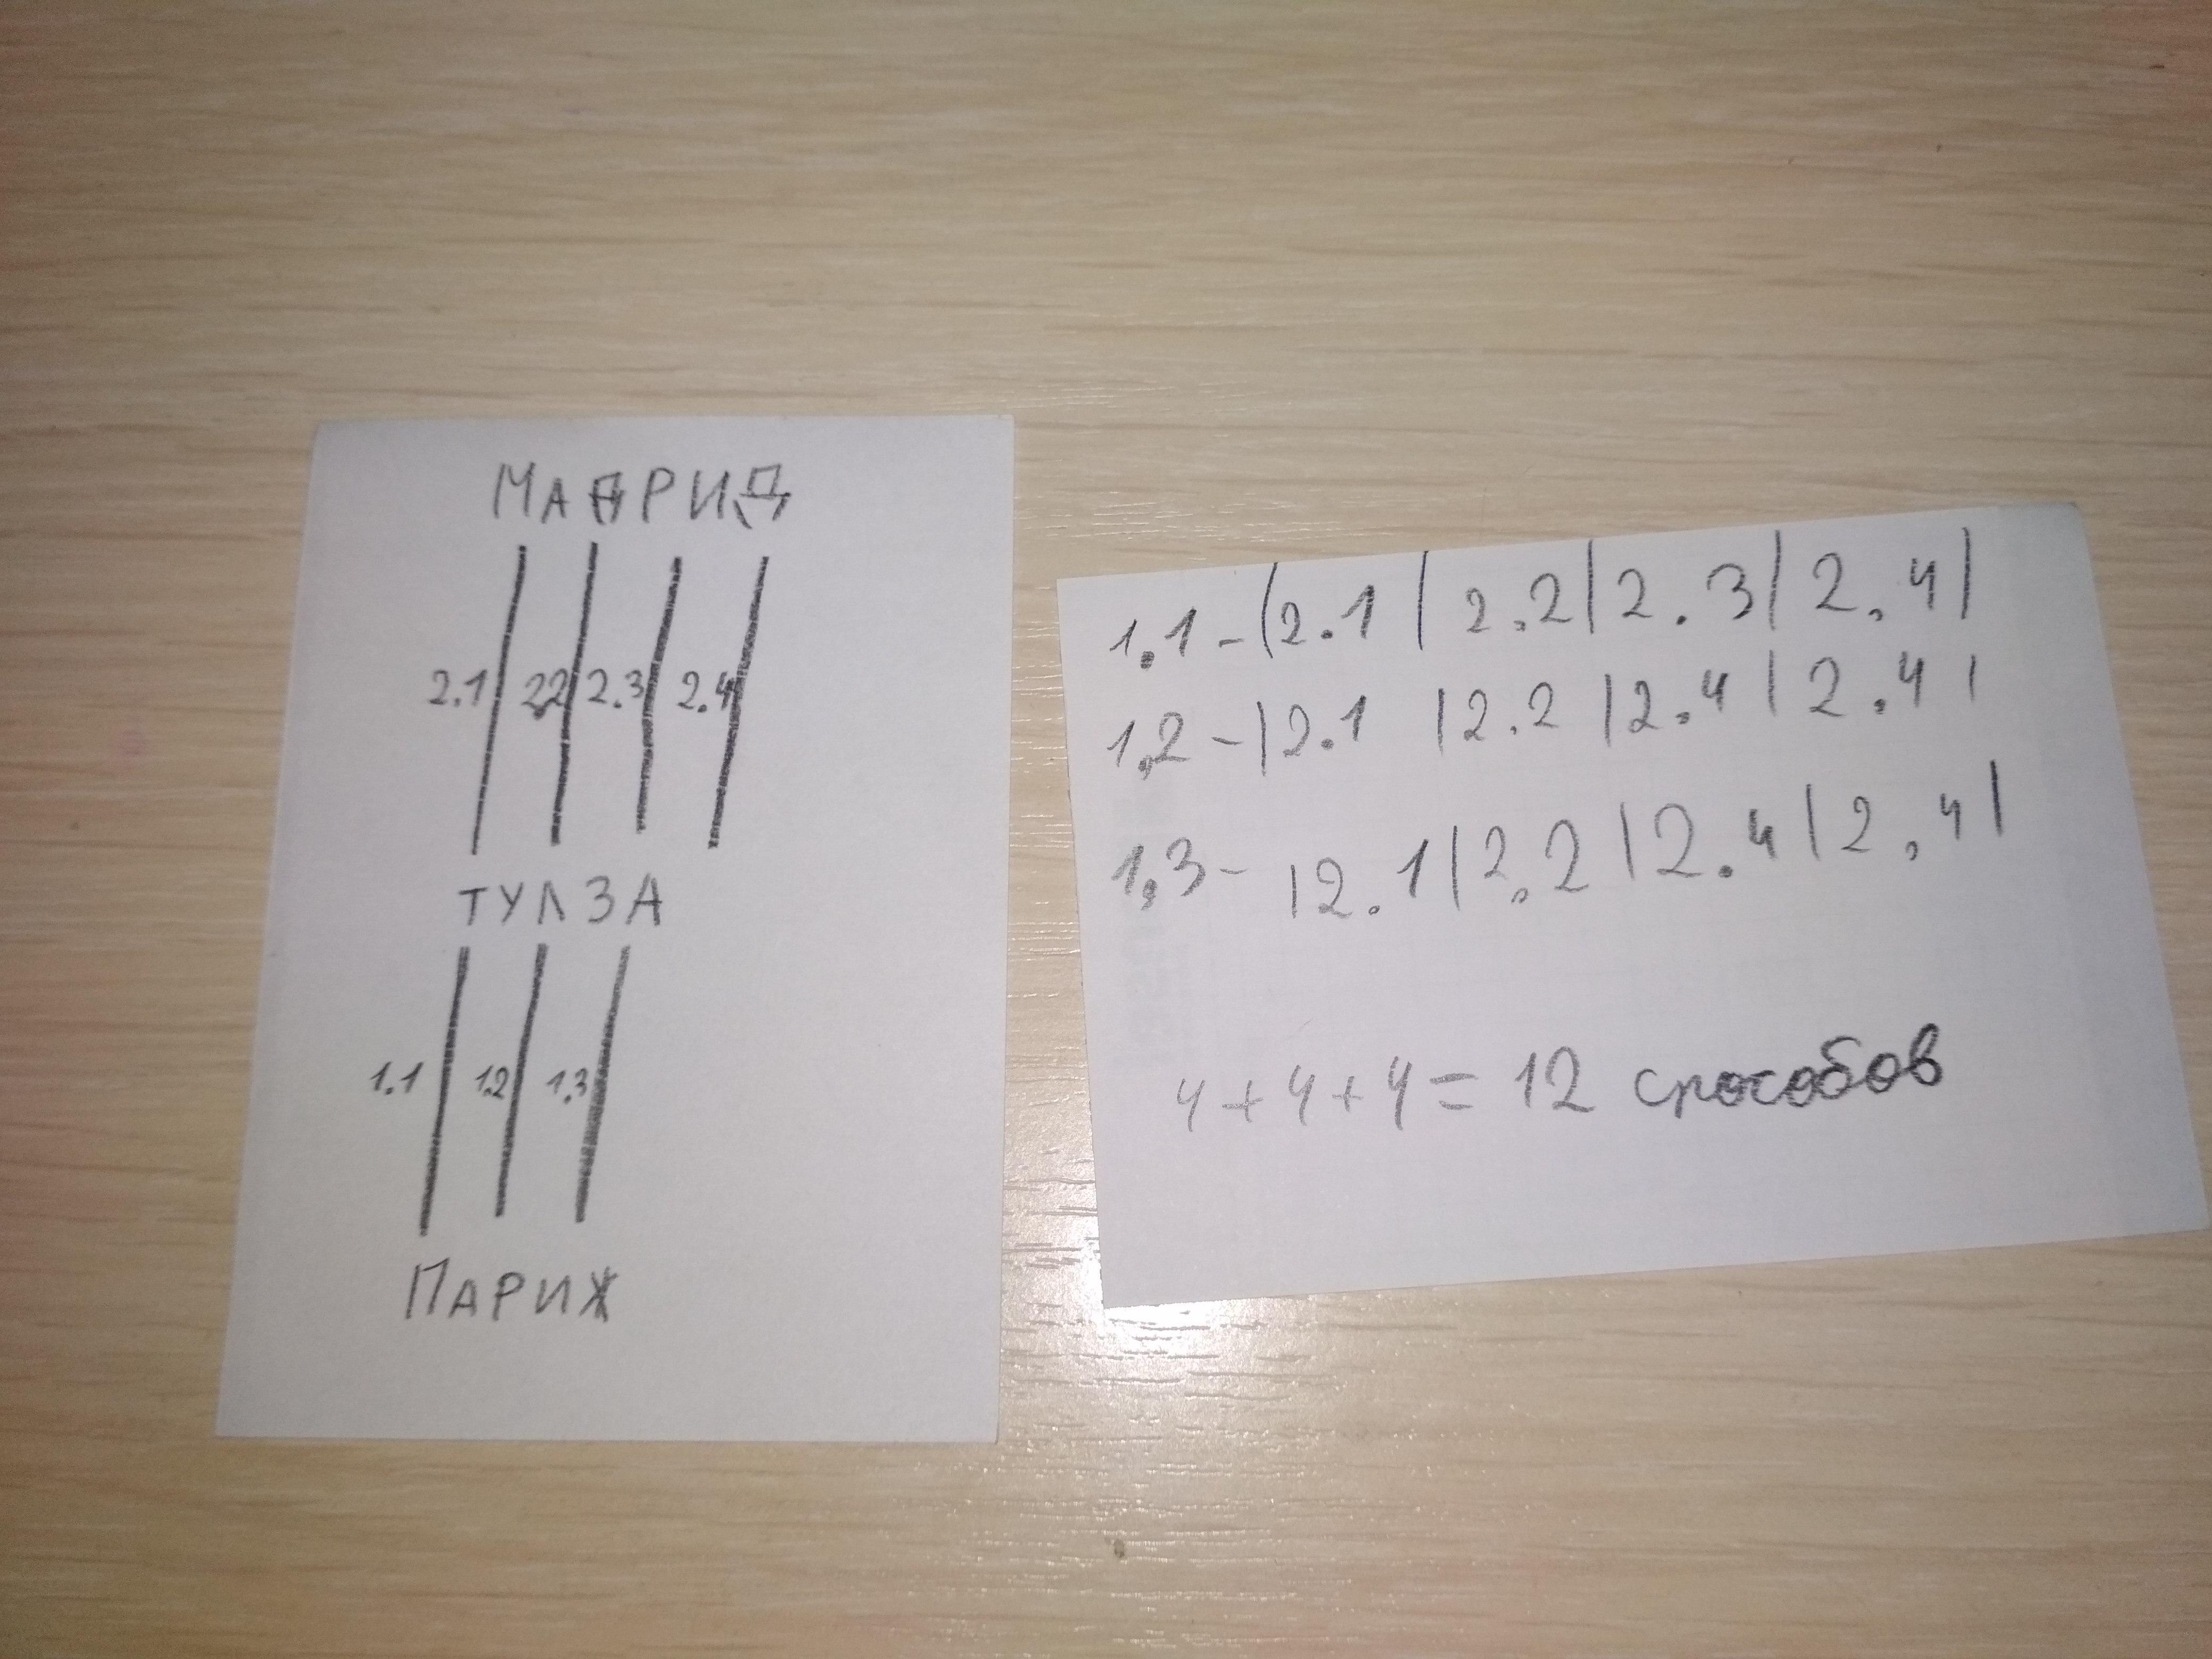 МАДРИД
2.1 2.2 2.3 2.4
ТУЛЗА
1.1 1.2 1.3
ПАРИЖ
1.1 - |2.1 | 2.2 | 2.3 | 2.4 |
1.2 - | 2.1 | 2.2 | 2.4 | 2.4 |
1.3 - | 2.1 | 2.2 | 2.4 | 2.4 |
4 + 4 + 4 = 12 способов